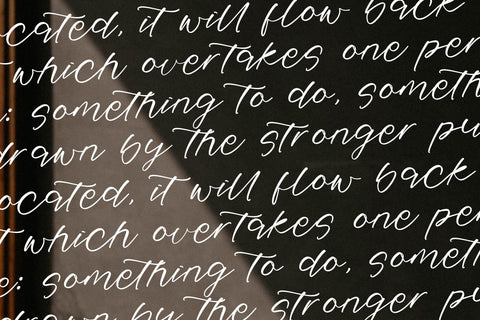 ocated, it will flow back
which overtakes one per
: something to do, someth
drawn by the stronger pu
ocated, it will flow back
t which overtakes one per
e: something to do, someth
drawn by the stronger pu